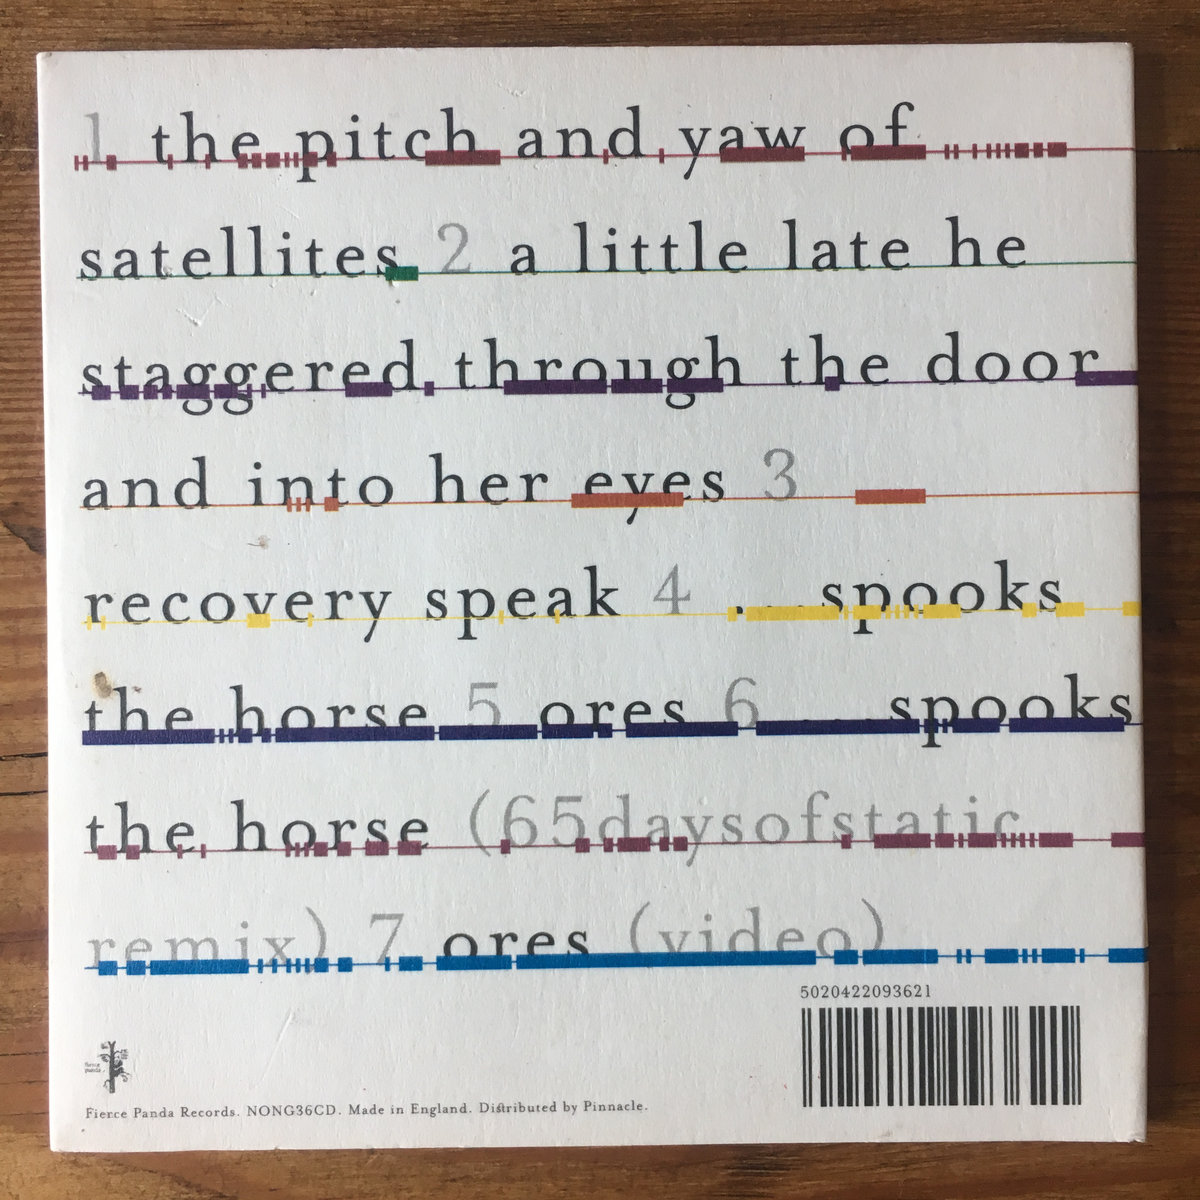 1 the pitch and yaw of
satellites 2 a little late he
staggered through the door
and into her eyes 3
recovery speak 4 ... spooks
the horse 5 ores 6 ... spooks
the horse (65daysofstatic
remix) 7 ores (video)
5020422093621
fierce
panda
Fierce Panda Records. NONG36CD. Made in England. Distributed by Pinnacle.